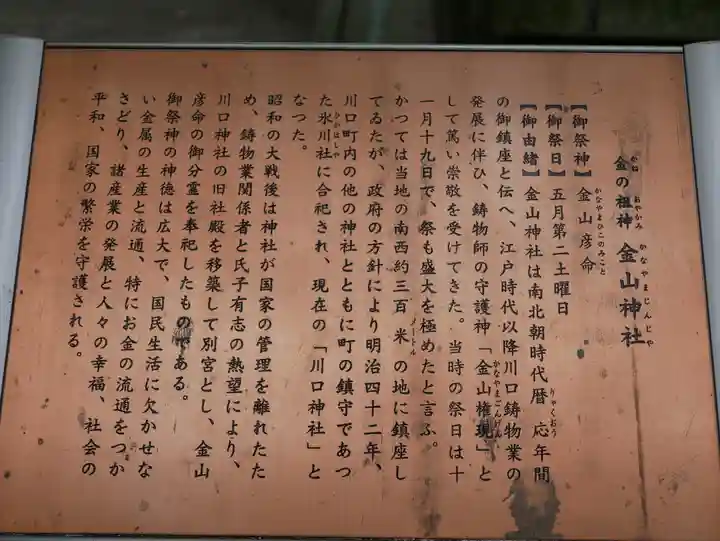 金の祖神 金山神社
【御祭神】 金山彦命
【御祭日】 五月第二土曜日
【御由緒】 金山神社は南北朝時代暦応年間
の御鎮座と伝へ、江戸時代以降川口鋳物業の
発展に伴ひ、鋳物師の守護神「金山権現」と
して篤い崇敬を受けてきた。当時の祭日は十
一月十九日で、祭も盛大を極めたと言ふ。
かつては当地の南西約三百米の地に鎮座し
てゐたが、政府の方針により明治四十二年、
川口町内の他の神社とともに町の鎮守であつ
た氷川社に合祀され、現在の「川口神社」と
なつた。
昭和の大戦後は神社が国家の管理を離れたた
め、鋳物業関係者と氏子有志の熱望により、
川口神社の旧社殿を移築して別宮とし、金山
彦命の御分霊を奉祀したものである。
御祭神の神徳は広大で、国民生活に欠かせな
い金属の生産と流通、特にお金の流通をつか
さどり、諸産業の発展と人々の幸福、社会の
平和、国家の繁栄を守護される。